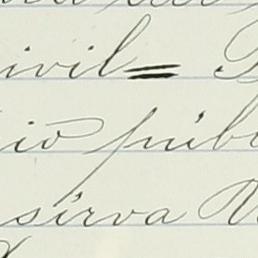 ivil=
ió públ
sírva